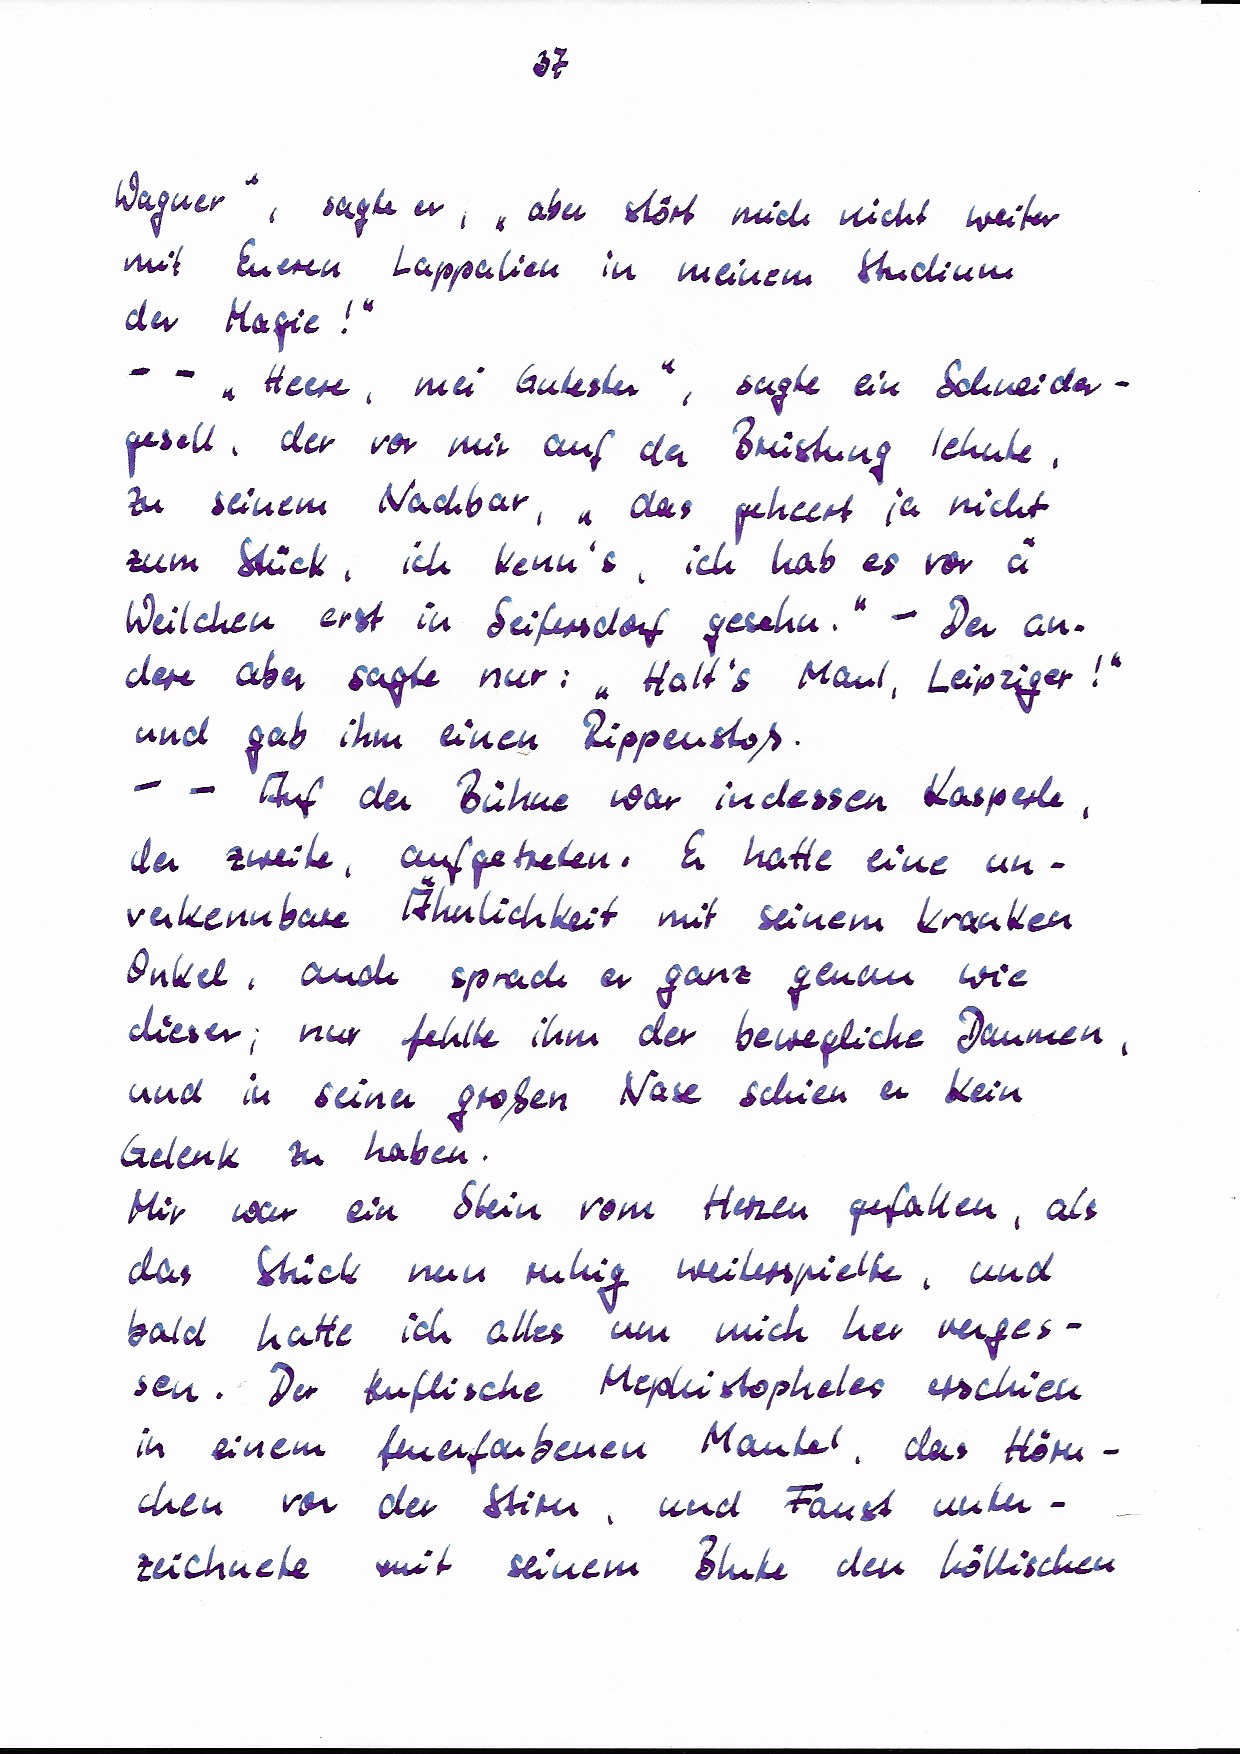 37
Wagner", sagte er, „aber stört mich nicht weiter
mit Eueren Lappalien in meinem Studium
der Magie!"
- - „Heere, mei Gutester", sagte ein Schneider-
gesell, der vor mir auf der Brüstung lehnte,
zu seinem Nachbar, „das geheert ja nicht
zum Stück, ich kenn's, ich hab es vor ä
Weilchen erst in Seifersdorf gesehn." - Der an-
dere aber sagte nur: „Halt's Maul, Leipziger!"
und gab ihm einen Rippenstoß.
- - Auf der Bühne war indessen Kasperle,
der zweite, aufgetreten. Er hatte eine un-
verkennbare Ähnlichkeit mit seinem kranken
Onkel, auch sprach er ganz genau wie
dieser; nur fehlte ihm der bewegliche Daumen,
und in seiner großen Nase schien er kein
Gelenk zu haben.
Mir war ein Stein vom Herzen gefallen, als
das Stück nun ruhig weiterspielte, und
bald hatte ich alles um mich her verges-
sen. Der teuflische Mephistopheles erschien
in einem feuerfarbenen Mantel, das Hörn-
chen vor der Stirn, und Faust unter-
zeichnete mit seinem Blute den höllischen